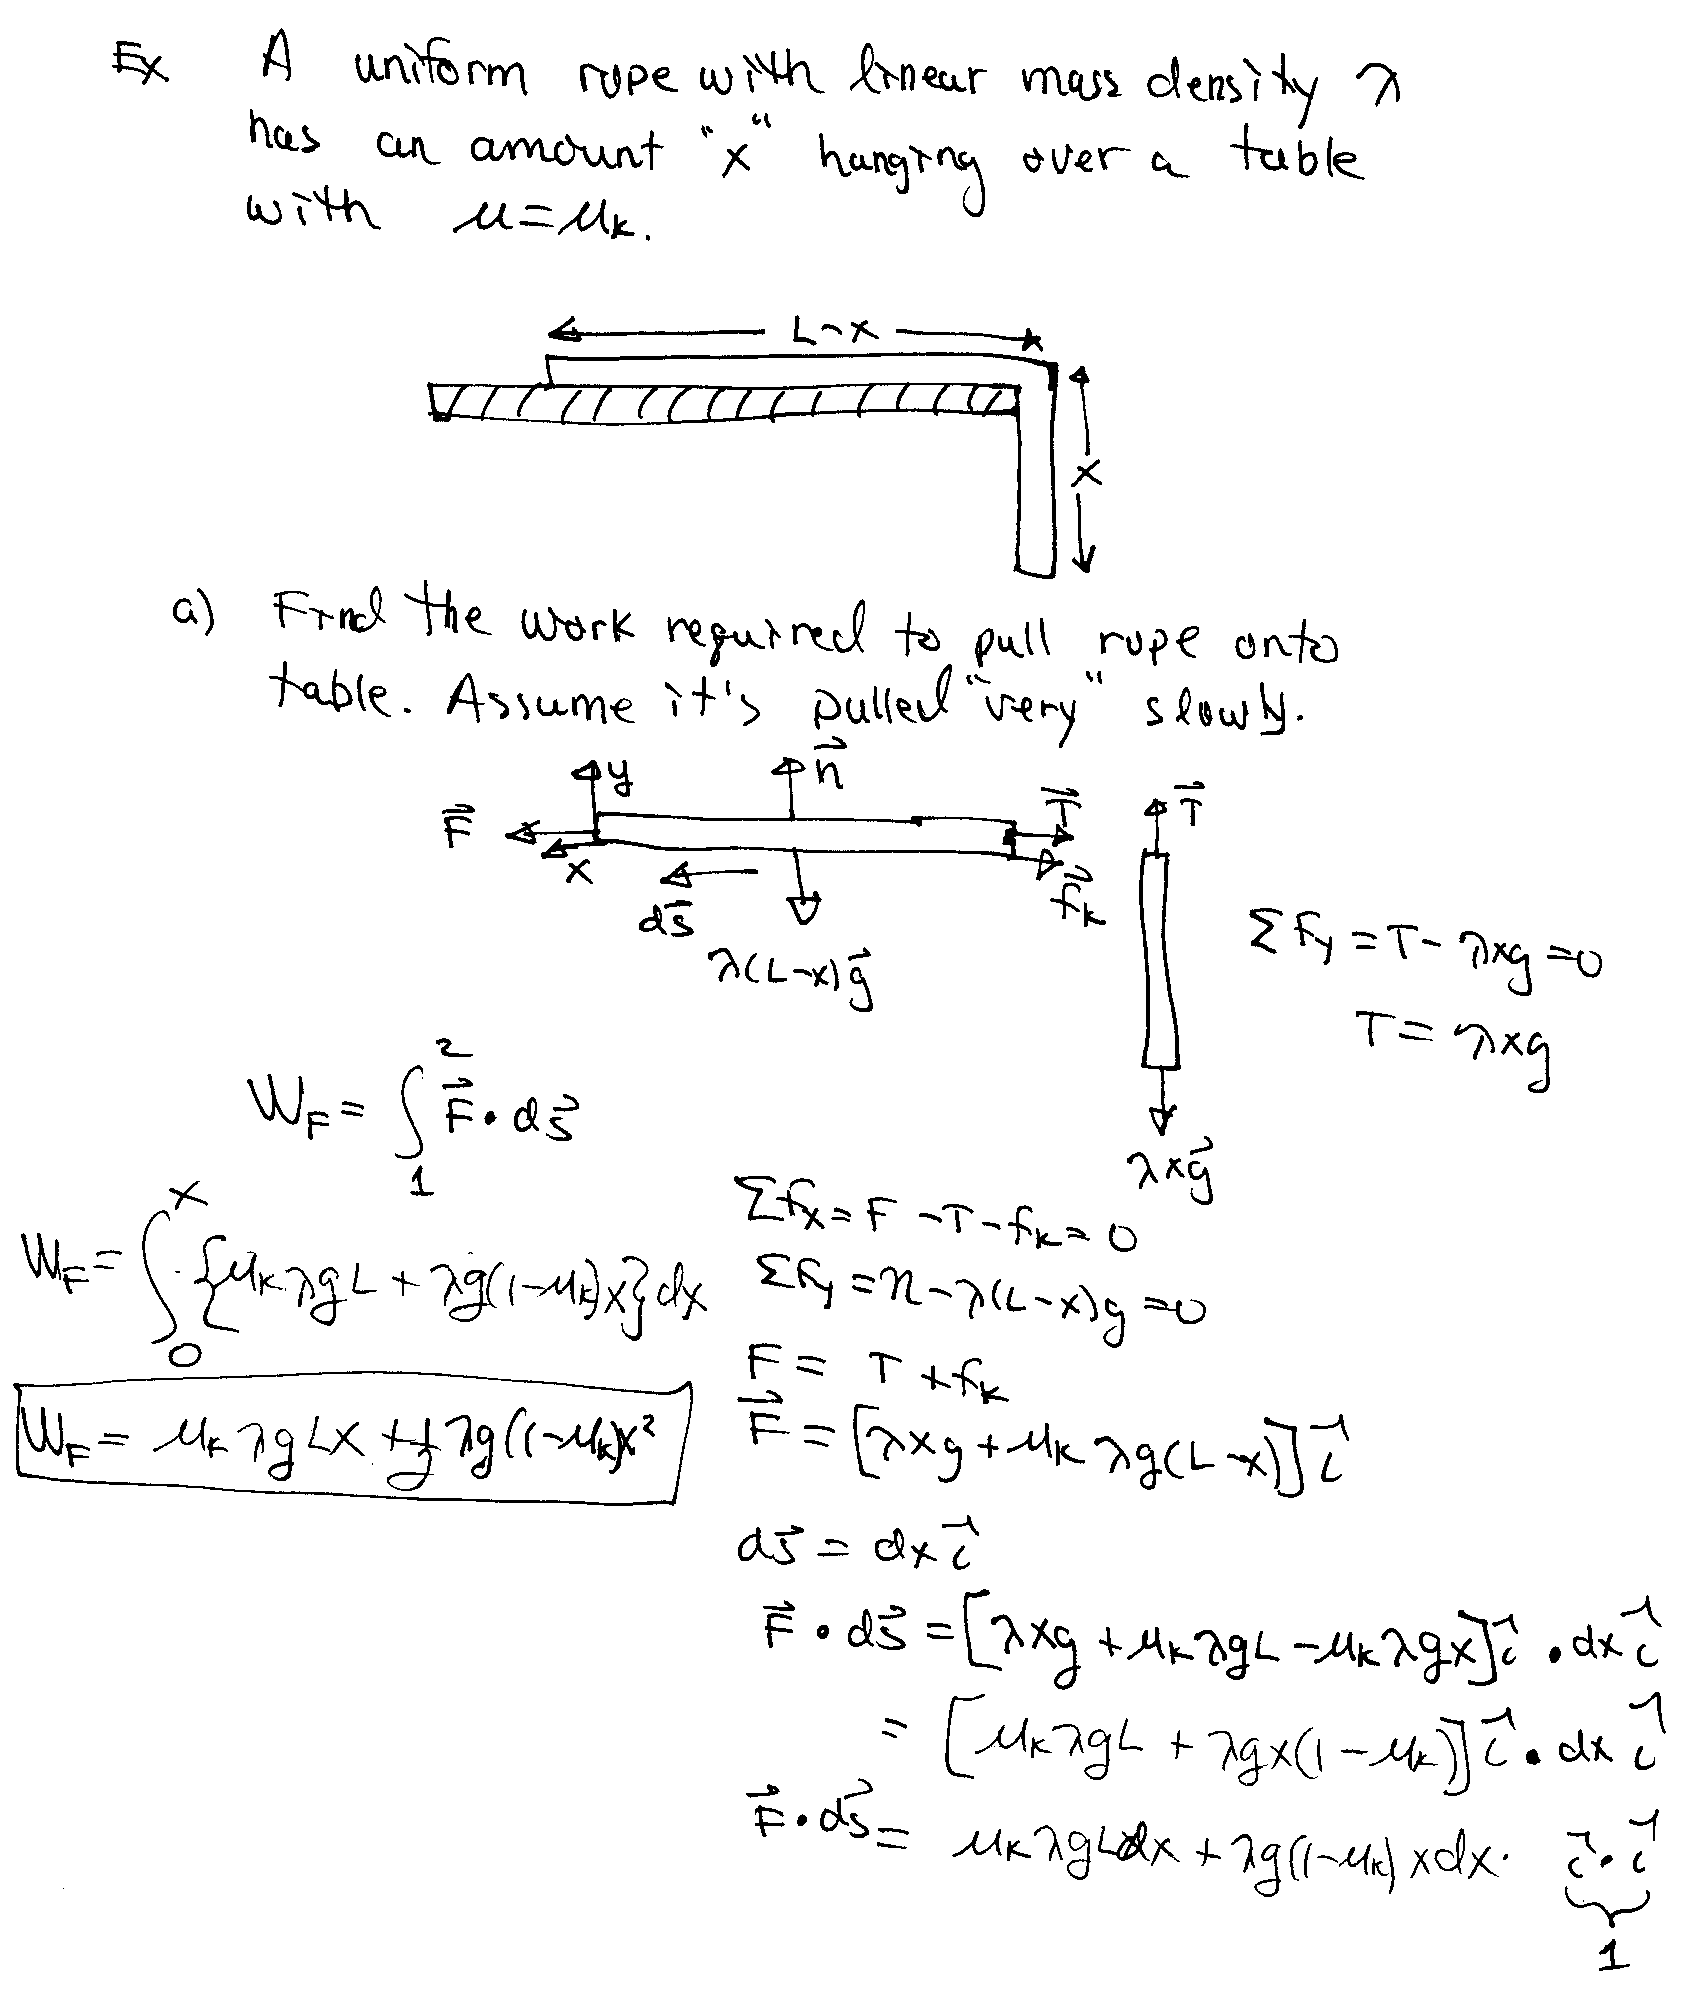 Ex A uniform rope with linear mass density λ
has an amount "x" hanging over a table
with μ=μₖ.
L-x
x
a) Find the work required to pull rope onto
table. Assume it's pulled "very" slowly.
y
n⃗
F⃗
T⃗
T⃗
x
ds⃗
f⃗ₖ
λ(L-x)g⃗
ΣFy = T - λxg = 0
T = λxg
λxg⃗
W_F = ∫₁² F⃗ • ds⃗
ΣFx = F - T - fₖ = 0
W_F = ∫₀ˣ {μₖλgL + λg(1-μₖ)x}dx
ΣFy = n - λ(L-x)g = 0
F = T + fₖ
W_F = μₖλgLx + ½λg(1-μₖ)x²
F⃗ = [λxg + μₖλg(L-x)]i⃗
ds⃗ = dx i⃗
F⃗ • ds⃗ = [λxg + μₖλgL - μₖλgx]i⃗ • dx i⃗
= [μₖλgL + λgx(1-μₖ)]i⃗ • dx i⃗
F⃗ • ds⃗ = μₖλgLdx + λg(1-μₖ)xdx · i⃗ • i⃗
1